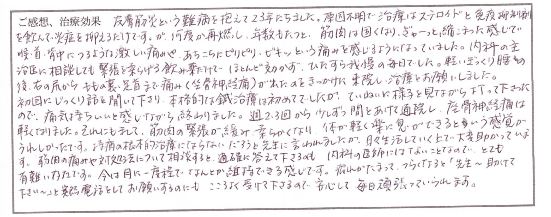 ご感想、治療効果
皮膚筋炎という難病を抱えて23年たちました。原因不明で治療はステロイドと免疫抑制剤
を飲んで炎症を抑えるだけです。が何度か再燃し、年数もたつと、筋肉は固くなり、ぎゅーっと縮こまった感じで
背中につるような激しい痛みや、あちこちにピリピリ、ピキッという痛みを感じるようになっていました。内科の主
治医に相談しても緊張を柔らげる飲み薬だけで ほとんど効かず、ひたすら我慢の毎日でした。軽いぎっくり腰の
後、右のお尻から ももの裏、足首まで痛み(坐骨神経痛)が出たのをきっかけに来院し、治療をお願いしました。
初回にじっくり話を聞いて下さり、本格的な鍼治療は初めてでしたが、ていねいに様子を見ながら打って下さった
ので、痛気持ちいいと感じながら終わりました。週2,3回から少しずつ間をあけて通院し、坐骨神経痛は
軽くなりました。それにもまして、筋肉の緊張が緩み 柔らかくなり 体が軽く楽に 
うれしかったです。治療の根本的治療にはならない だろうと先生に言われましたが、日々生活していく上で大変助かっていま
す。筋肉の痛みや対処法について相談すると、適確に答えて下さるのも 内科の医師にはないことなので、とても
有難い存在です。今は月に一度程で なんとか維持できる感じです。痛んでたまって、つらくなると「先生〜助けて
下さい〜」と 電話をして お願いするのにも こころよく受けて下さるので 安心して 毎日頑張っていられます。